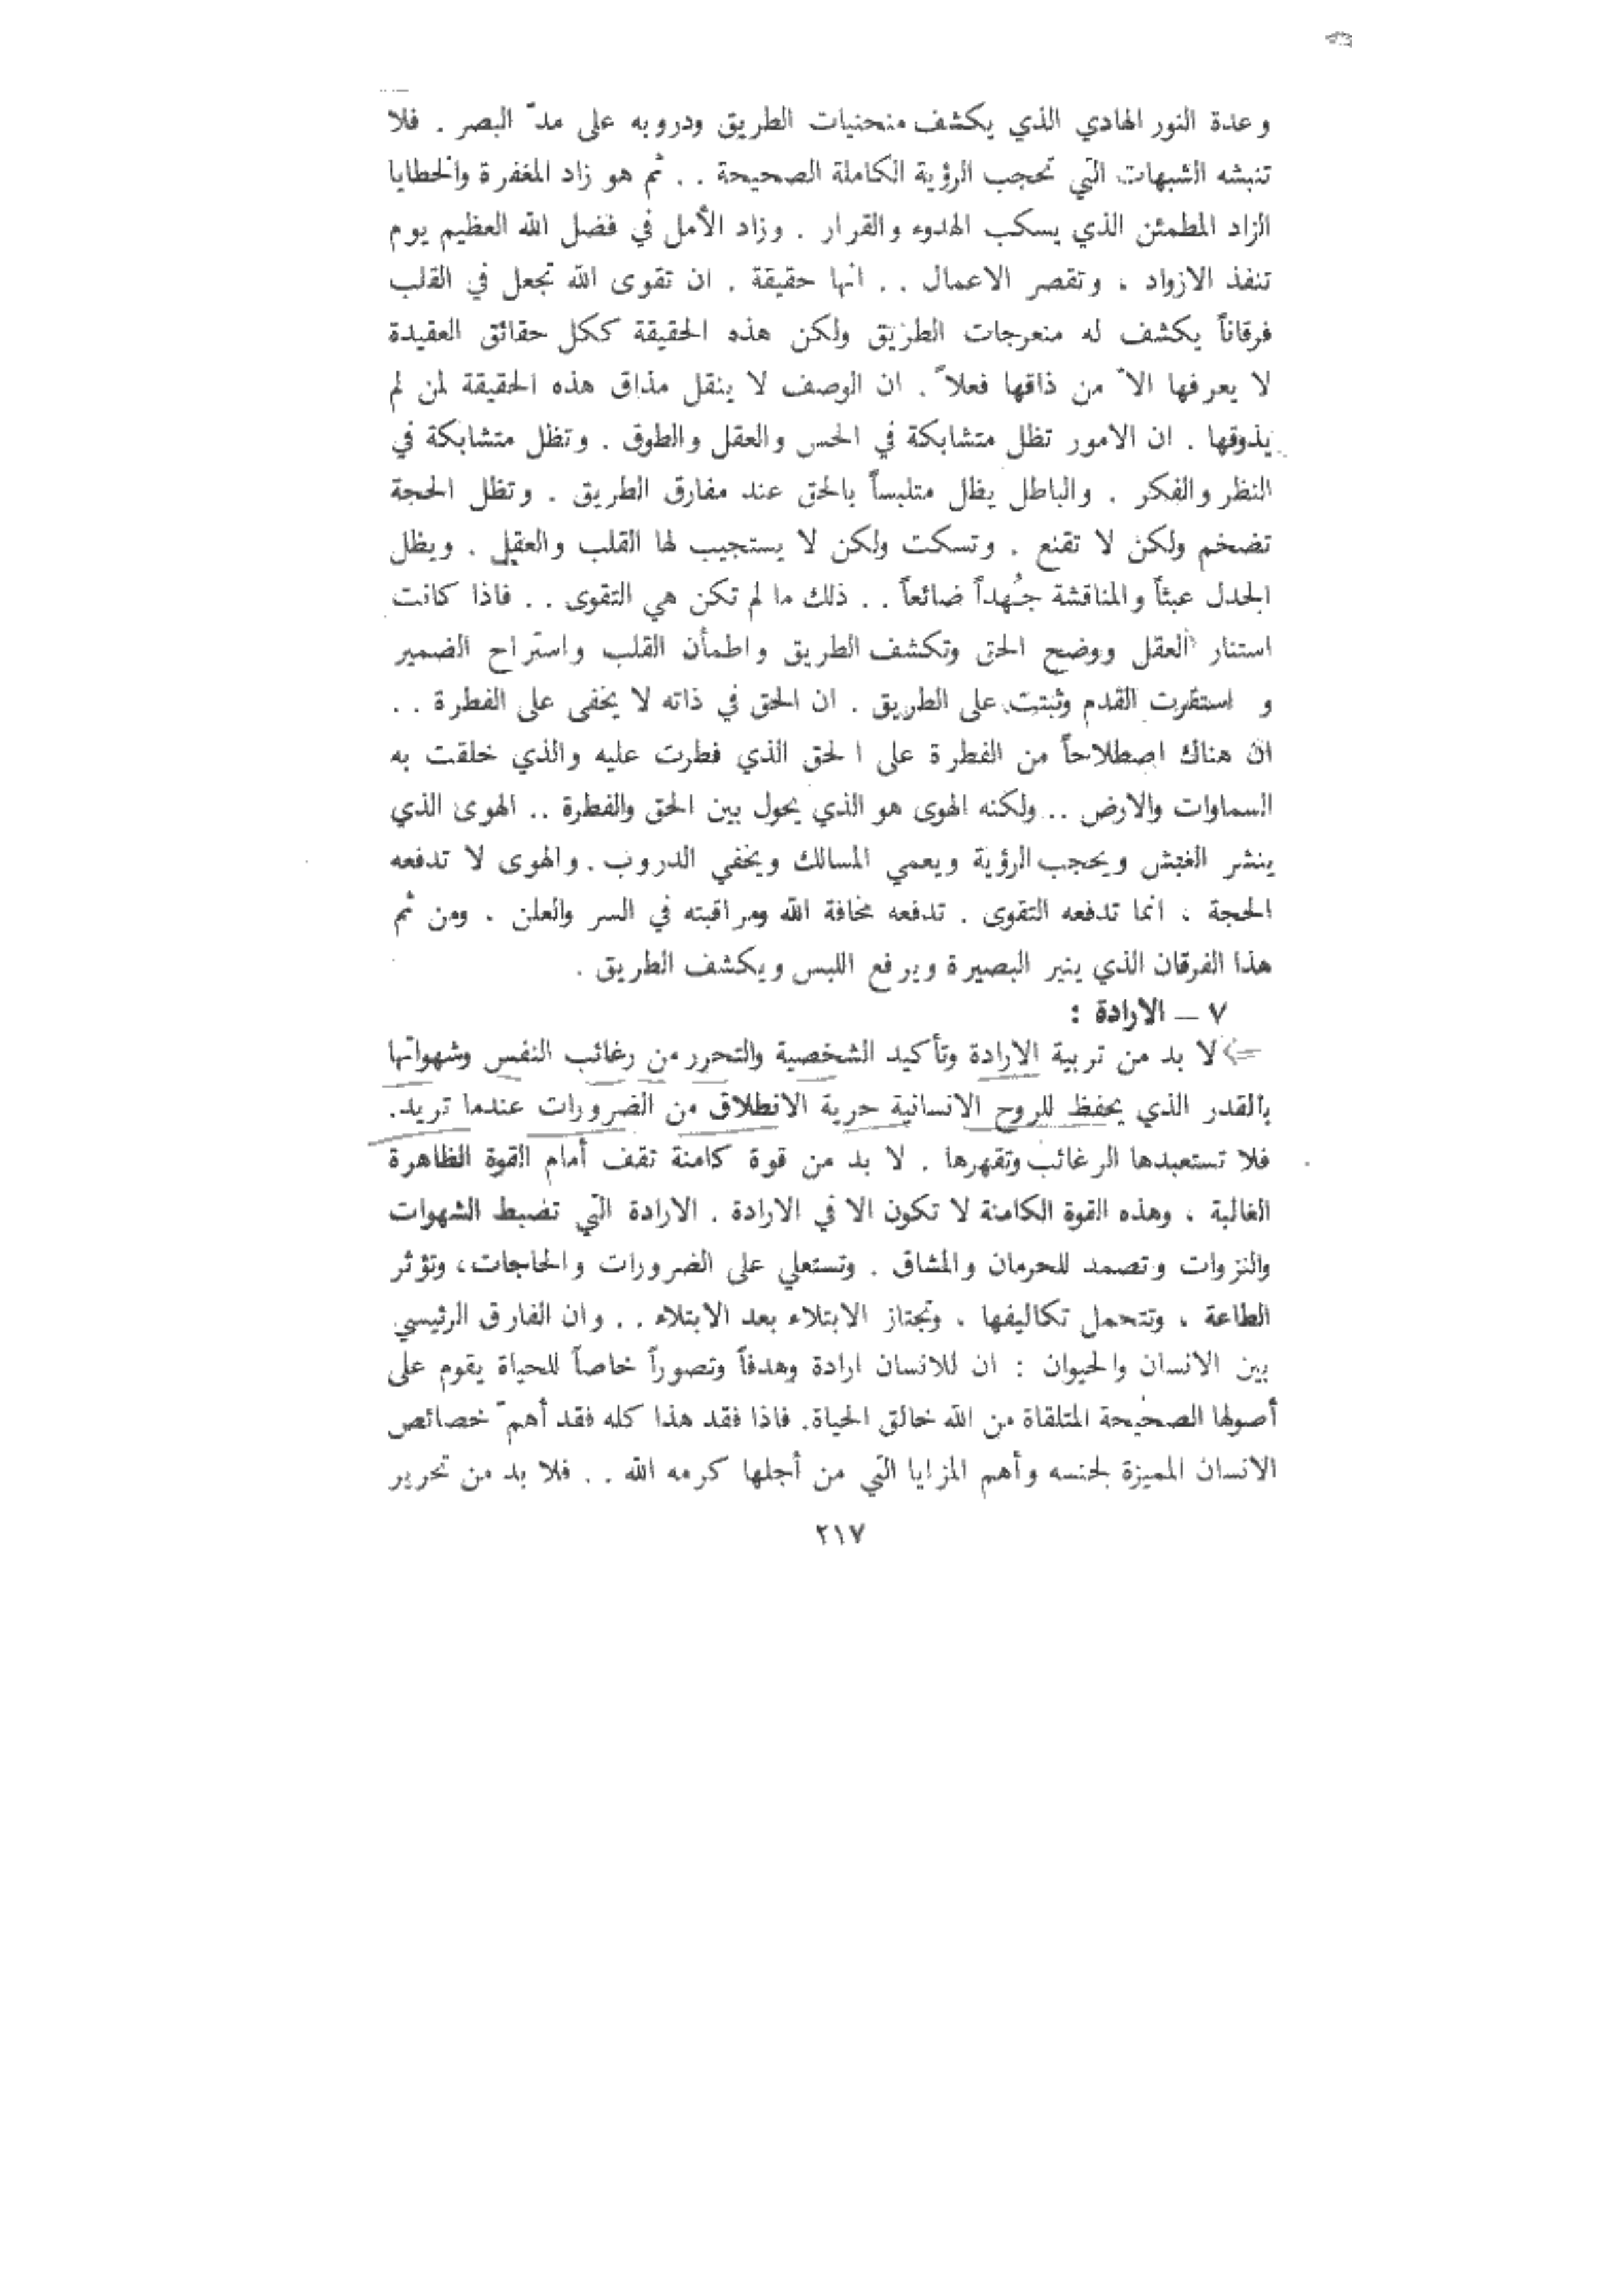 وعدة النور الهادي الذي يكشف منحنيات الطريق ودروبه على مدّ البصر . فلا
تنبشه الشبهات التي تحجب الرؤية الكاملة الصحيحة . . ثم هو زاد المغفرة والخطايا
الزاد المطمئن الذي يسكب الهدوء والقرار . وزاد الأمل في فضل الله العظيم يوم
تنفذ الازواد ، وتقصر الاعمال . . انها حقيقة . ان تقوى الله تجعل في القلب
فرقاناً يكشف له منعرجات الطريق ولكن هذه الحقيقة ككل حقائق العقيدة
لا يعرفها الاّ من ذاقها فعلاً . ان الوصف لا ينقل مذاق هذه الحقيقة لمن لم
يذوقها . ان الامور تظل متشابكة في الحس والعقل والطوق . وتظل متشابكة في
النظر والفكر . والباطل يظل متلبساً بالحق عند مفارق الطريق . وتظل الحجة
تضخم ولكن لا تقنع . وتسكت ولكن لا يستجيب لها القلب والعقل . ويظل
الجدل عبثاً والمناقشة جُهداً ضائعاً . . ذلك ما لم تكن هي التقوى . . فاذا كانت
استنار العقل ووضح الحق وتكشف الطريق واطمأن القلب واستراح الضمير
و استقرت القدم وثبتت على الطريق . ان الحق في ذاته لا يخفى على الفطرة . .
ان هناك اصطلاحاً من الفطرة على الحق الذي فطرت عليه والذي خلقت به
السماوات والارض .. ولكنه الهوى هو الذي يحول بين الحق والفطرة .. الهوى الذي
ينشر الغبش ويحجب الرؤية ويعمي المسالك ويخفي الدروب . والهوى لا تدفعه
الحجة ، انما تدفعه التقوى . تدفعه مخافة الله ومراقبته في السر والعلن . ومن ثم
هذا الفرقان الذي ينير البصيرة ويرفع اللبس ويكشف الطريق .
٧ – الارادة :
لا بد من تربية الارادة وتأكيد الشخصية والتحرر من رغائب النفس وشهواتها
بالقدر الذي يحفظ للروح الانسانية حرية الانطلاق من الضرورات عندما تريد.
فلا تستعبدها الرغائب وتقهرها . لا بد من قوة كامنة تقف أمام القوة الظاهرة
الغالبة ، وهذه القوة الكامنة لا تكون الا في الارادة . الارادة التي تضبط الشهوات
والنزوات وتصمد للحرمان والمشاق . وتستعلي على الضرورات والحاجات، وتؤثر
الطاعة ، وتتحمل تكاليفها . وتجتاز الابتلاء بعد الابتلاء . . وان الفارق الرئيسي
بين الانسان والحيوان : ان للانسان ارادة وهدفاً وتصوراً خاصاً للحياة يقوم على
أصولها الصحيحة المتلقاة من الله خالق الحياة. فاذا فقد هذا كله فقد أهمّ خصائص
الانسان المميزة لجنسه وأهم المزايا التي من أجلها كرمه الله . . فلا بد من تحرير
٢١٧